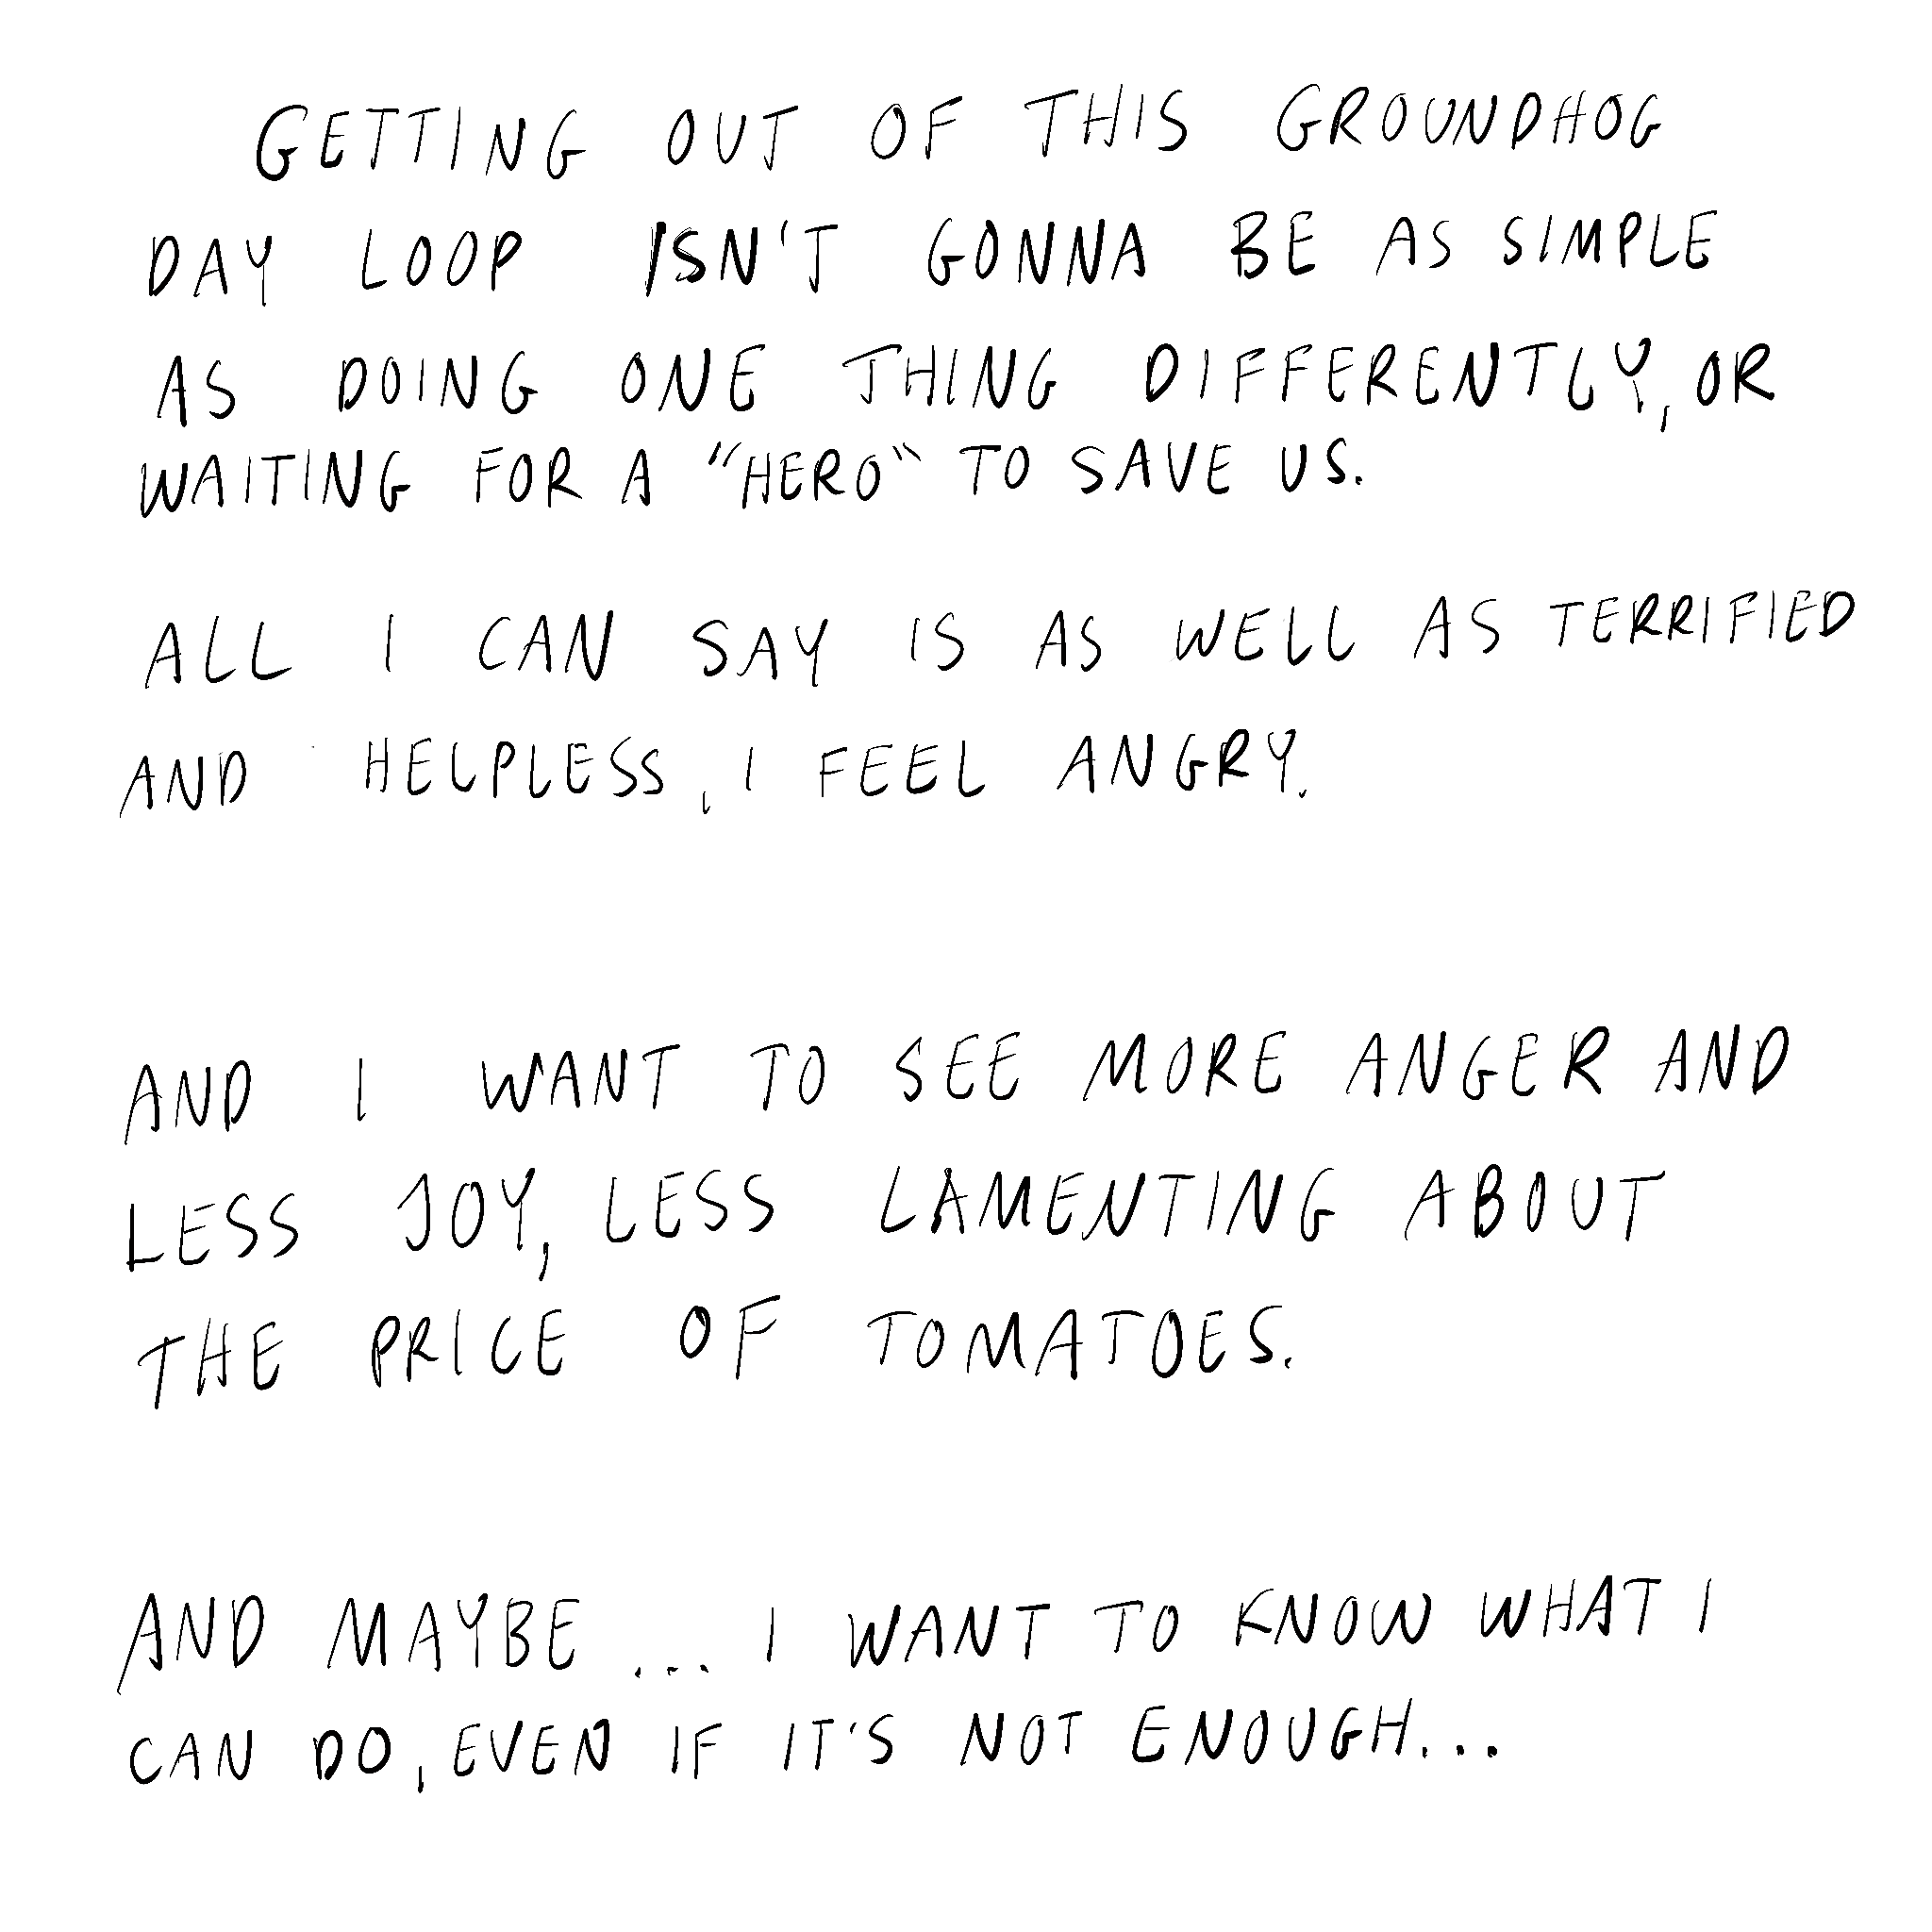 GETTING OUT OF THIS GROUNDHOG
DAY LOOP ISN'T GONNA BE AS SIMPLE
AS DOING ONE THING DIFFERENTLY, OR
WAITING FOR A "HERO" TO SAVE US.
ALL I CAN SAY IS AS WELL AS TERRIFIED
AND HELPLESS, I FEEL ANGRY.
AND I WANT TO SEE MORE ANGER AND
LESS JOY, LESS LAMENTING ABOUT
THE PRICE OF TOMATOES.
AND MAYBE... I WANT TO KNOW WHAT I
CAN DO, EVEN IF IT'S NOT ENOUGH...